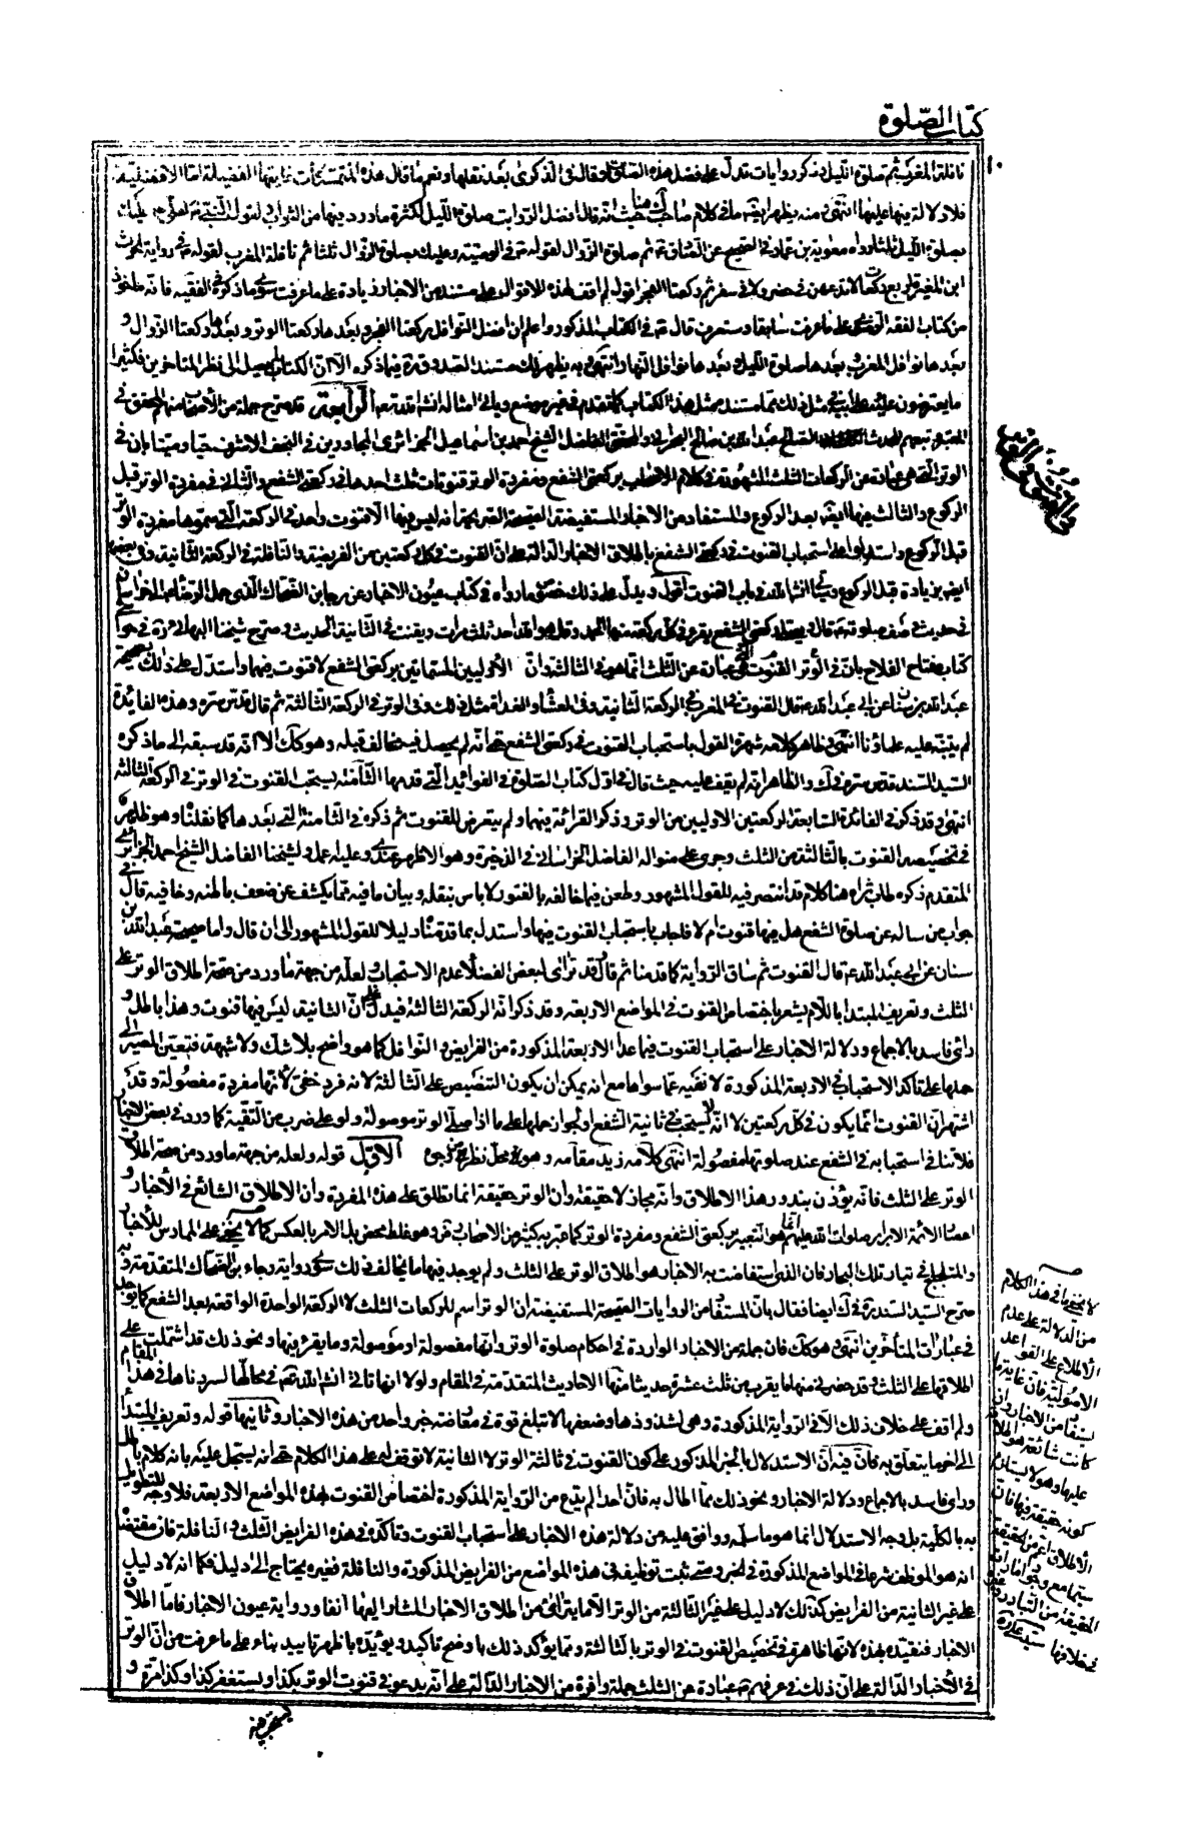 كتاب الصّلوة
١٠
نافلة المغرب ثم صلوة الليل ثم ذكر روايات تدل على فضل هذه الصلوة قال في الذكرى بعد نقلها ونعم ما قال هذه المتمسكات غايتها الفضيلة اما الافضلية
فلا دلالة فيها عليها انتهى ومنه يظهر ايضا ما في كلام صاحب حيث انه قال افضل الرواتب صلوة الليل لكثرة ما ورد فيها من الثواب ولقول النبي لعلي عليك
بصلوة الليل ثلثا رواه معوية بن عمار في الصحيح عن الصادق ثم صلوة الزوال لقوله في الوصية وعليك بصلوة الزوال ثلثا ثم نافلة المغرب لقوله في رواية الحرث
ابن المغيرة اربع ركعات لا تدعهن في حضر ولا في سفر ثم ركعتا الفجر اقول لم اقف لهذه الاقوال على مستند من الاخبار زيادة على ما عرفت سوى ما ذكره في الفقيه فانه ماخوذ
من كتاب الفقه الرضوي على ما عرفت سابقا وستعرف قال في الكتاب المذكور واعلم ان افضل النوافل ركعتا الفجر وبعدها ركعتا الوتر وبعدها ركعتا الزوال و
بعدها نوافل المغرب وبعدها صلوة الليل وبعدها نوافل النهار انتهى وبه يظهر لك مستند الصدوق فيما ذكره الا ان الكتاب لم يصل الى نظر المتاخرين فكثيرا
ما يعترضون عليه وعلى ابيه في مثل ذلك مما مستنده مثل هذا الكتاب كما تقدم في غير موضع وياتي امثاله انشاء الله تعالى الرابعة قد صرح جملة من الاصحاب منهم المحقق في
المعتبر وتبعهم المحدث الصالح الشيخ عبد الله بن صالح البحراني والمحقق الفاضل الشيخ احمد بن اسماعيل الجزائري المجاور في النجف الاشرف حيا وميتا بان في
الوتر التي هي عبارة عن الركعات الثلث المشهورة في كلام الاصحاب بركعتي الشفع ومفردة الوتر قنوتات ثلث احدها في ركعتي الشفع والثاني في مفردة الوتر قبل
الركوع والثالث فيها ايضا بعد الركوع والمستفاد من الاخبار المستفيضة الصحيحة الصريحة انه ليس فيها الا قنوت واحد في الركعة التي سموها مفردة الوتر
قبل الركوع واستدلوا على استحباب القنوت في ركعتي الشفع باطلاق الاخبار الدالة على ان القنوت في كل ركعتين من الفريضة والنافلة في الركعة الثانية وفي بعض
ايضا بزيادة قبل الركوع وسياتي انشاء الله في باب القنوت اقول ويدل على ذلك خصوص ما رواه في كتاب عيون الاخبار عن رجا بن الضحاك الذي حمل الرضا الى خراسان
في حديث وصف صلوته قال ويصلي ركعتي الشفع يقرء في كل ركعة منهما الحمد وقل هو الله احد ثلث مرات ويقنت في الثانية الحديث وصرح شيخنا البهائي في حواشي
كتاب مفتاح الفلاح بان في الوتر القنوت التي هي عبارة عن الثلث انما هو في الثالثة وان الأوليين المسماتين بركعتي الشفع لا قنوت فيهما واستدل على ذلك بصحيحة
عبد الله بن سنان عن ابي عبد الله قال القنوت في المغرب في الركعة الثانية وفي العشاء والغداة مثل ذلك وفي الوتر في الركعة الثالثة ثم قال قدس سره وهذه الفايدة
لم ينبه عليه علماؤنا انتهى وظاهر كلامه شهرة القول باستحباب القنوت في ركعتي الشفع حتى انه لم يحصل فيه مخالف قبله وهو كك الا انه قد سبقه الى ما ذكره
السيد السند قدس سره في ك والظاهر انه لم يقف عليه حيث قال في اول كتاب الصلوة في الفوائد التي قدمها الثامنة يستحب القنوت في الوتر في الركعة الثالثة
انتهى وقد ذكر في الفائدة السابعة الركعتين الاوليين من الوتر وذكر القرائة فيهما ولم يتعرض للقنوت ثم ذكره في الثامنة التي بعدها كما نقلناه وهو ظاهر
في تخصيص القنوت بالثالثة من الثلث وجرى على منواله الفاضل الخراساني في الذخيرة وهو الاظهر عندي وعليه عملي ولشيخنا الفاضل الشيخ احمد الجزائري
المتقدم ذكره طاب ثراه هنا كلام قد انتصر فيه للقول المشهور وطعن فيما خالفه بالفتور لا باس بنقله وبيان ما فيه مما يكشف عن ضعف باطنه وخافيه قال في
جواب من ساله عن صلوة الشفع هل فيها قنوت ام لا فاجاب باستحباب القنوت فيها واستدل بما قدمناه دليلا للقول المشهور الى ان قال واما صحيحة عبد الله بن
سنان عن ابي عبد الله قال القنوت ثم ساق الرواية كما قدمنا ثم قال فقد تراءى لبعض الفضلاء عدم الاستحباب ولعله من جهة ما ورد من صحة اطلاق الوتر على
الثلث وتعريف المبتدا باللام يشعر باختصاص القنوت في المواضع الاربعة وقد ذكر انه الركعة الثالثة فيدل على ان الثانية ليس فيها قنوت وهذا باطل و
رأي فاسد بالاجماع ودلالة الاخبار على استحباب القنوت فيما عدا الاربعة المذكورة من الفرايض والنوافل كما هو واضح بلا شك ولا شبهة فتعين المصير الى
حملها على تاكد الاستحباب في الاربعة المذكورة لا نفيه عما سواها مع انه يمكن ان يكون التنصيص على الثالثة لانه فرد خفي لأنها مفردة مفصولة وقد
اشتهر ان القنوت انما يكون في كل ركعتين لا انه لا يستحب في ثانية الشفع او لجواز حملها على ما اذا صلى الوتر موصولة ولو على ضرب من التقية كما ورد في بعض الاخبار
فلا ينافي استحبابه في الشفع عند صلوتها مفصولة انتهى كلامه زيد مقامه وهو محل نظر من وجوه الاول قوله ولعله من جهة ما ورد من صحة اطلاق
الوتر على الثلث فانه يؤذن بندور هذا الاطلاق وانه مجاز لا حقيقة وان الوتر حقيقة انما تطلق على هذه المفردة وان الاطلاق الشائع في الأخبار و
اعصار الائمة الابرار صلوات الله عليهم انما هو التعبير بركعتي الشفع ومفردة الوتر كما عبر به كثير من الاصحاب وهو غلط محض بل الامر بالعكس كما لا يخفى على الممارس للأخبار
والمتطلع في تيار تلك البحار فان الذي استفاضت به الاخبار هو اطلاق الوتر على الثلث ولم يوجد فيها ما يخالف ذلك سوى رواية رجاء بن الضحاك المتقدمة وبه
صرح السيد السند في ك ايضا فقال بان المستفاد من الروايات الصحيحة المستفيضة ان الوتر اسم للركعات الثلث لا الركعة الواحدة الواقعة بعد الشفع كما يوجد
في عبارات المتأخرين انتهى وهو كك فان جملة من الاخبار الواردة في احكام صلوة الوتر وانها مفصولة او موصولة وما يقرء فيها ونحو ذلك قد اشتملت على
اطلاقها على الثلث وقد حضرني منها ما يقرب من ثلث عشرة حديثا منها الاحاديث المتقدمة في المقام ولولا انها تاتي انشاء الله في محالها لسردناها في هذا المقام
ولم اقف على خلاف ذلك الا في الرواية المذكورة وهي لشذوذها وضعفها لا تبلغ قوة في معارضة خبر واحد من هذه الاخبار وثانيها قوله وتعريف المبتدأ
الى اخر ما يتعلق به فان فيه ان الاستدلال بالخبر المذكور على كون القنوت في ثالثة الوتر لا الثانية لا توقف له على هذا الكلام حتى انه يستعجل عليه بانه كلام باطل
ورأي فاسد بالاجماع ودلالة الاخبار ونحو ذلك مما اطال به فان احدا لم يدع من الرواية المذكورة اختصاص القنوت بهذه المواضع الاربعة فلا وجه للتطويل
به بالكلية بل وجه الاستدلال انما هو ما سلمه ووافق عليه من دلالة هذه الاخبار على استحباب القنوت وتأكده في هذه الفرايض الثلث والنافلة فان مقتضاه
انه هو الموظف شرعا في المواضع المذكورة في الخبر ومتى ثبت توظيفه في هذه المواضع من الفرايض المذكورة والنافلة فغيره يحتاج الى دليل فكما انه لا دليل
على غير الثانية من الفرايض كذلك لا دليل على غير الثالثة من الوتر الا ما يتراءى من اطلاق الاخبار المشار اليها آنفا ورواية عيون الاخبار فاما اطلاق
الاخبار فنقيده بهذه لانها ظاهرة في تخصيص القنوت في الوتر بالثالثة ومما يؤكد ذلك باوضح تاكيد ويؤيده باظهر تاييد بناء على ما عرفت من ان الوتر
في الأخبار الدالة على ان ذلك في عرفهم عبارة عن الثلث جملة وافرة من الاخبار الدالة على انه يدعو في قنوت الوتر بكذا ويستغفر كذا وكذا مرة و
يستجير
لا يخفى ما في هذا الكلام
من الدلالة على عدم
الاطلاع على القواعد
الاصولية فان غاية ما
يستفاد من الاخبار وان
كانت شائعة هو اطلاق
عليها وهو لا يستلزم
كونه حقيقة فيها فان
الاطلاق اعم من الحقيقة
سيما مع وجود امارات
الحقيقة من التبادر وغيره
في خلافها